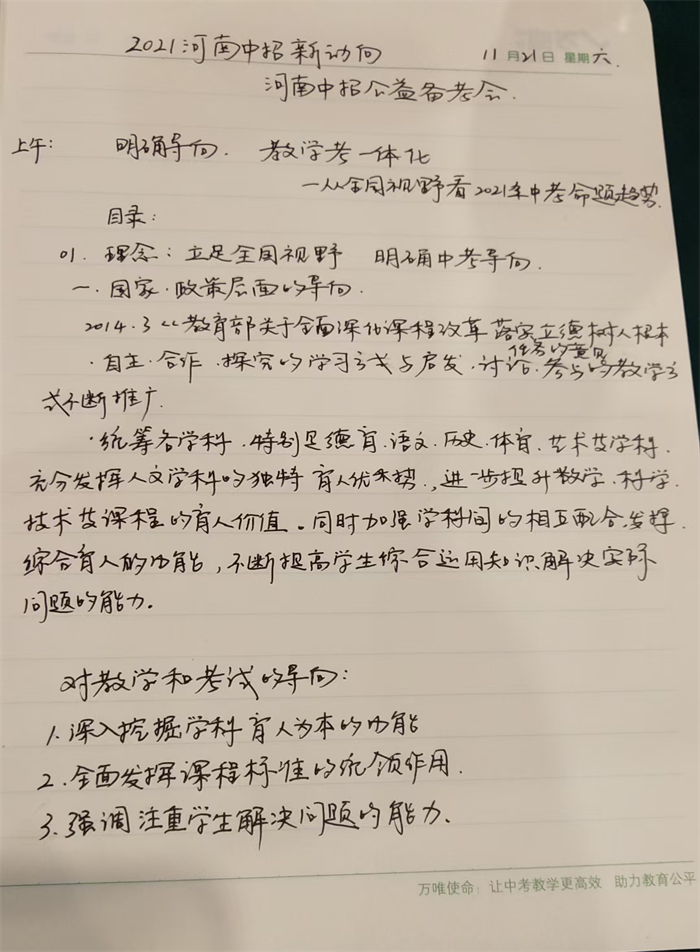 2021河南中招新动向 11月21日 星期六.
河南中招公益备考会.
上午: 明确导向. 教学考一体化
—从全国视野看2021年中考命题趋势.
目录:
01. 理念: 立足全国视野 明确中考导向.
一. 国家·政策层面的导向.
2014.3《教育部关于全面深化课程改革 落实立德树人根本
任务的意见
·自主·合作·探究的学习方式与启发·讨论·参与的教学方
式不断推广.
·统筹各学科.特别是德育.语文.历史.体育.艺术等学科.
充分发挥人文学科的独特育人优势.,进一步提升数学.科学.
技术等课程的育人价值。同时加强学科间的相互配合.发挥
综合育人的功能,不断提高学生综合运用知识解决实际
问题的能力.
对教学和考试的导向:
1.深入挖掘学科育人为本的功能
2.全面发挥课程标准的统领作用.
3.强调注重学生解决问题的能力.
万唯使命:让中考教学更高效 助力教育公平